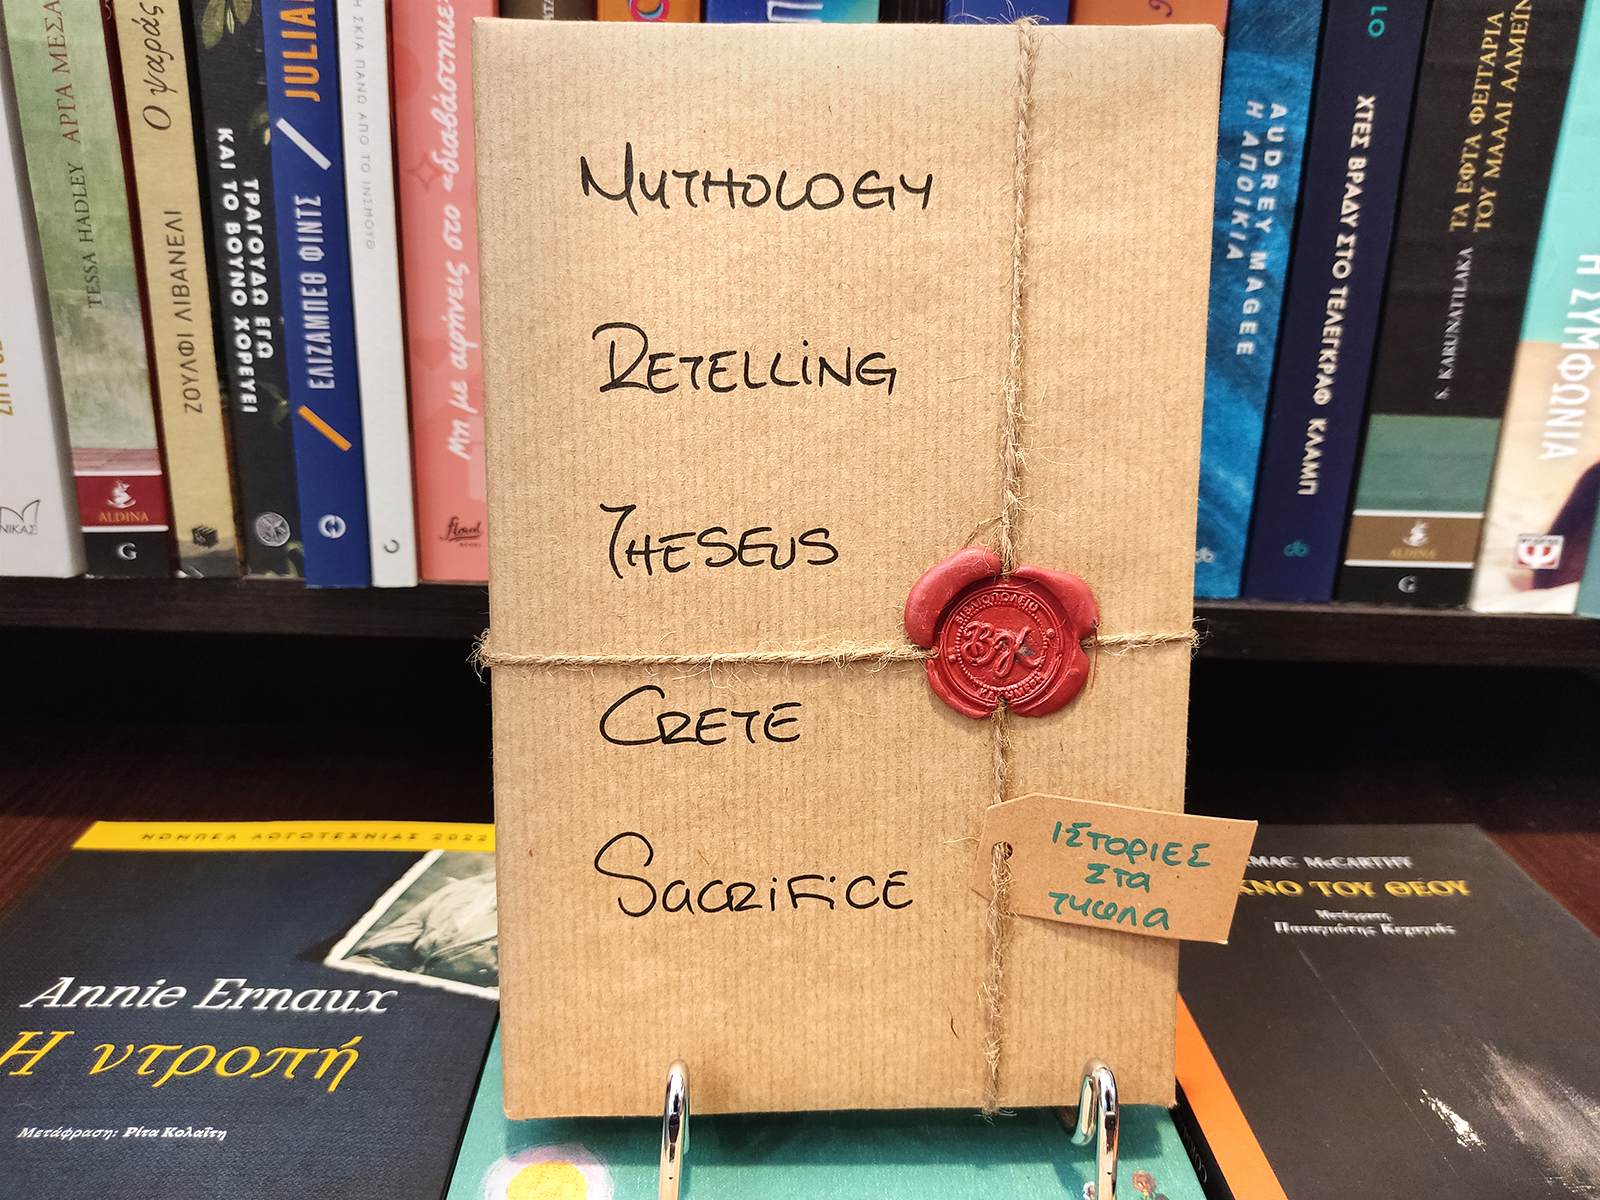 MYTHOLOGY
RETELLING
THESEUS
CRETE
SACRIFICE
ΙΣΤΟΡΙΕΣ
ΣΤΑ
ΤΥΦΛΑ
ΒΙΒΛΙΟΠΩΛΕΙΟ
TESSA HADLEY ΑΡΓΑ ΜΕΣΑ
ALDINA
G
Ο ψαράς
ΖΟΥΛΦΙ ΛΙΒΑΝΕΛΙ
ΤΡΑΓΟΥΔΩ ΕΓΩ
ΚΑΙ ΤΟ ΒΟΥΝΟ ΧΟΡΕΥΕΙ
JULIAN
ΕΛΙΖΑΜΠΕΘ ΦΙΝΤΣ
Η ΣΚΙΑ ΠΑΝΩ ΑΠΟ ΤΟ ΙΝΣΜΟΥΘ
μη με αφήνεις στο «διαβάστηκε»
floral
BOOKS
AUDREY MAGEE
Η ΑΠΟΙΚΙΑ
db
ΧΤΕΣ ΒΡΑΔΥ ΣΤΟ ΤΕΛΕΓΚΡΑΦ ΚΛΑΜΠ
db
S. KARUNATILAKA
ΤΑ ΕΦΤΑ ΦΕΓΓΑΡΙΑ
ΤΟΥ ΜΑΑΛΙ ΑΛΜΕΪΝ
ALDINA
G
Η ΣΥΜΦΩΝΙΑ
ΝΟΜΠΕΛ ΛΟΓΟΤΕΧΝΙΑΣ 2022
Annie Ernaux
Η ντροπή
Μετάφραση: Ρίτα Κολαΐτη
MAC McCARTHY
ΚΝΟ ΤΟΥ ΘΕΟΥ
Μετάφραση
Παναγιώτης Κεχαγιάς